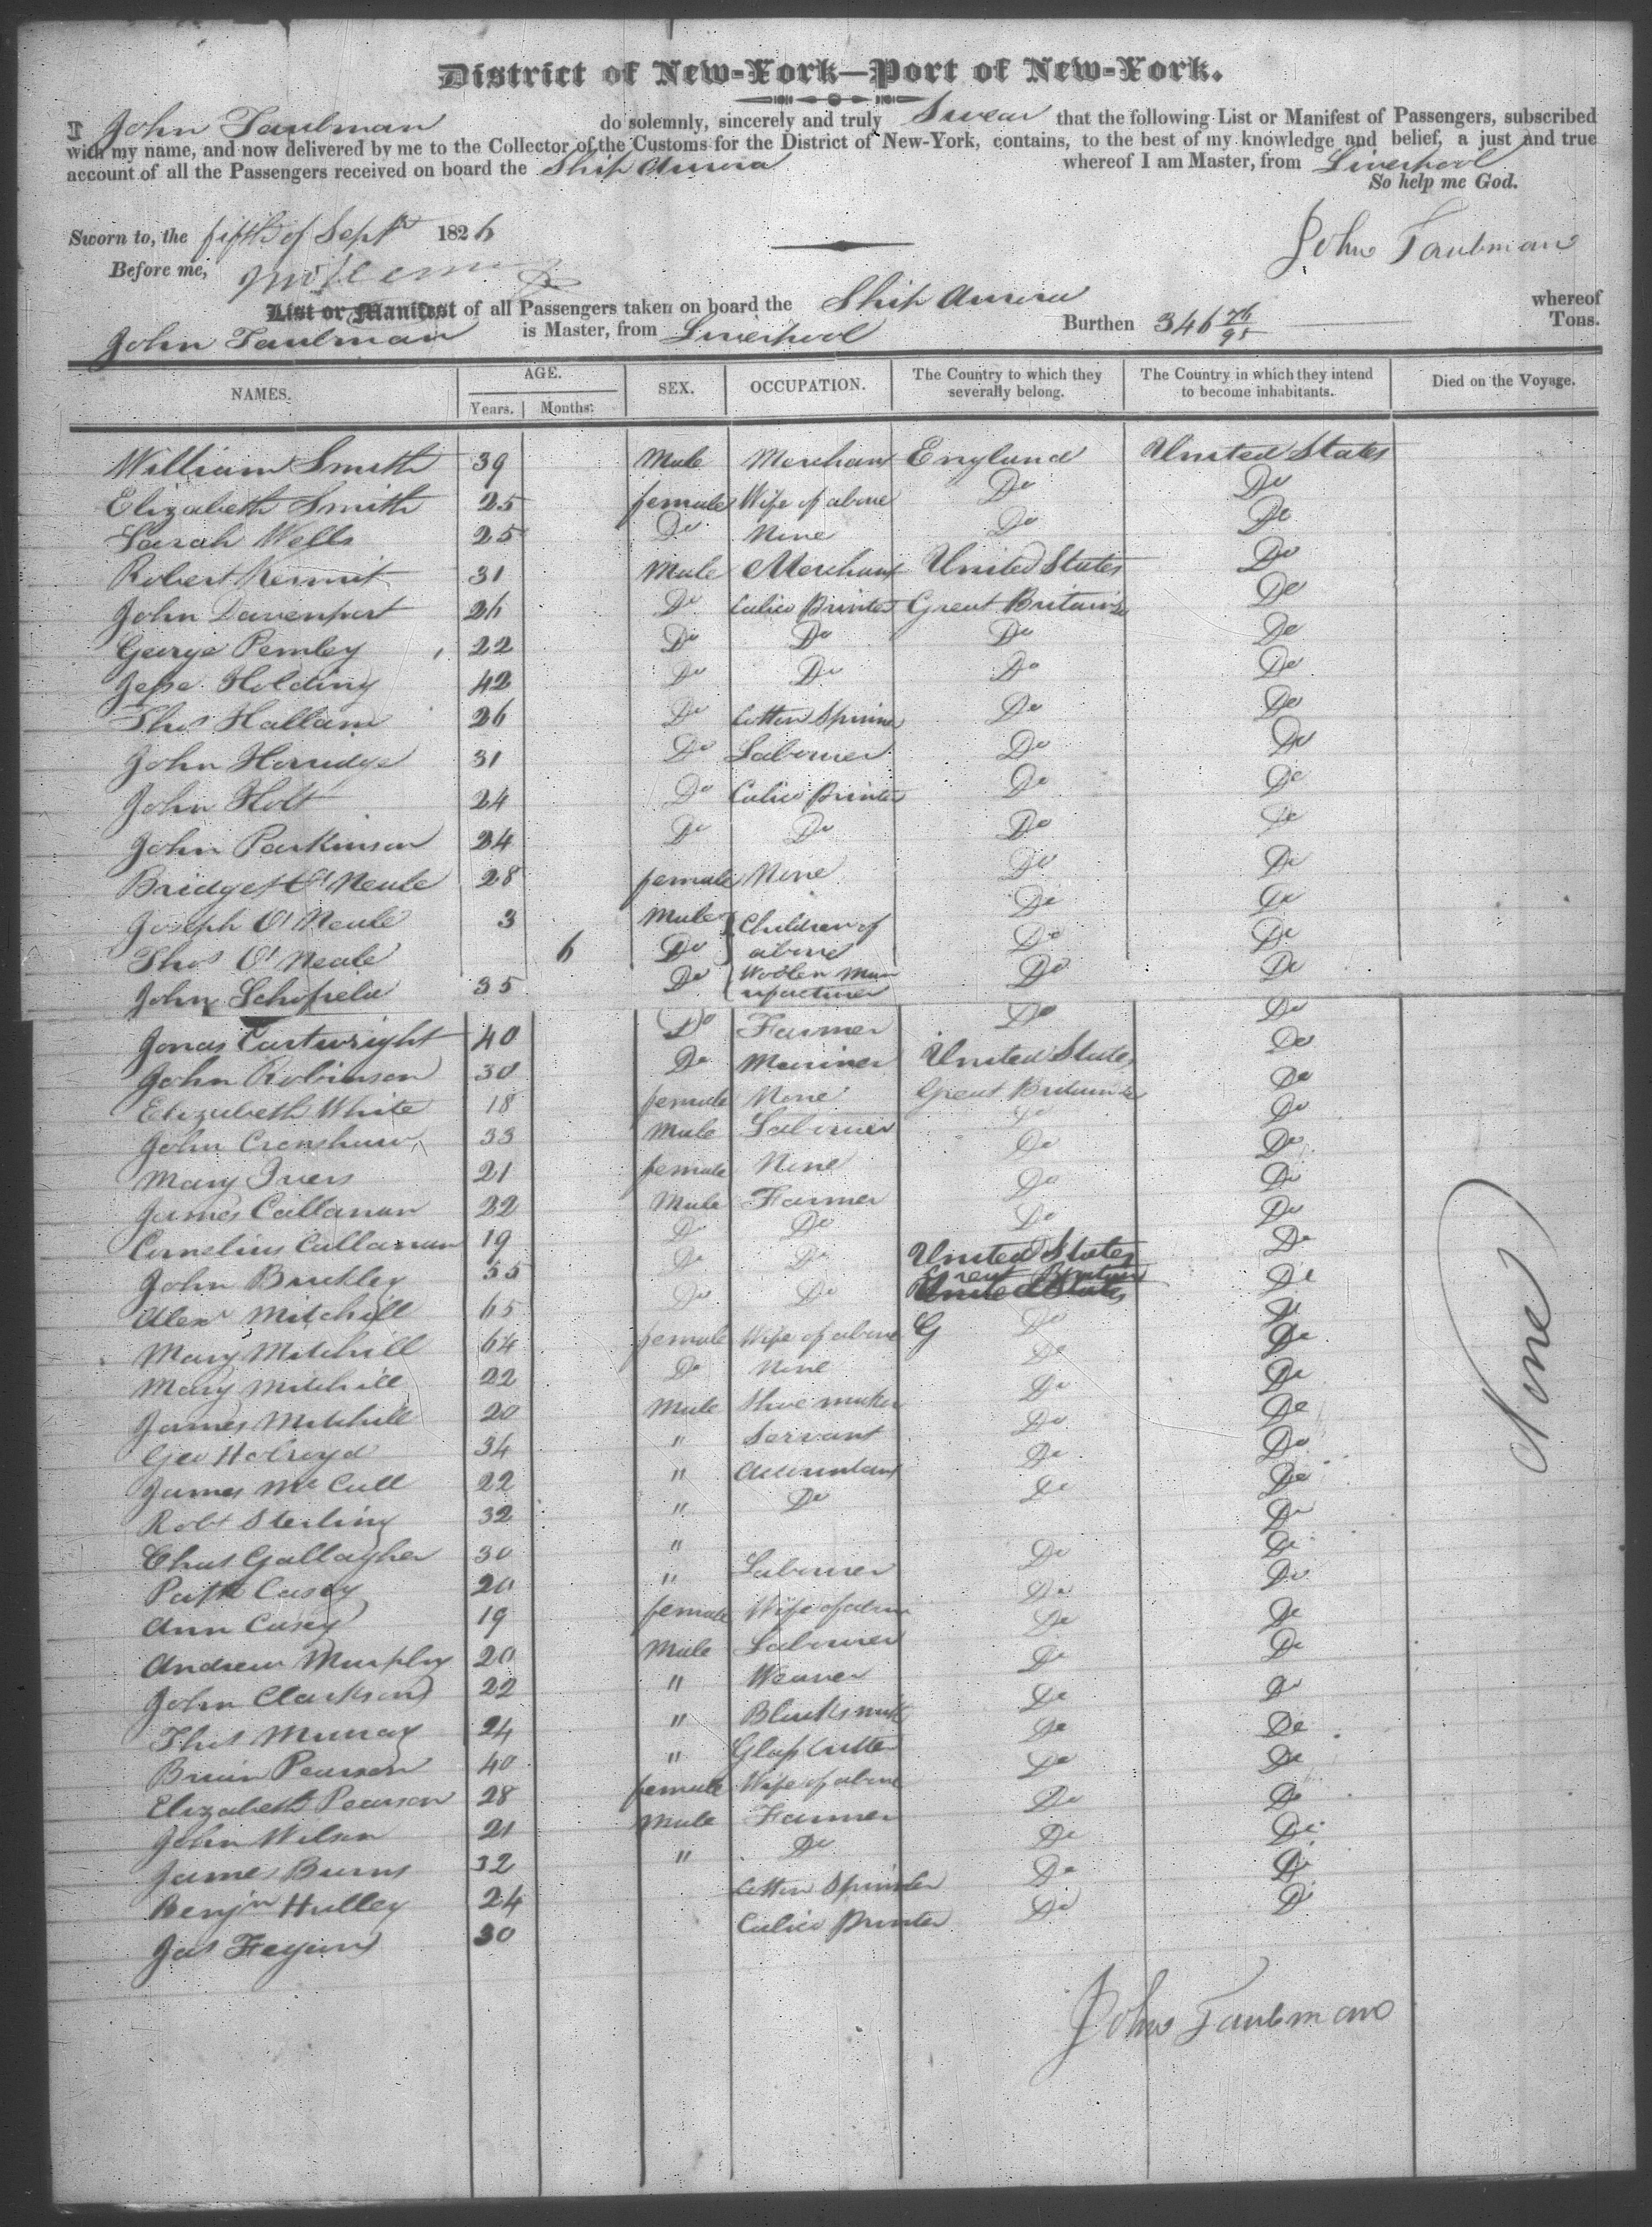 District of New-York—Port of New-York.
I John Taubman do solemnly, sincerely and truly Swear that the following List or Manifest of Passengers, subscribed
with my name, and now delivered by me to the Collector of the Customs for the District of New-York, contains, to the best of my knowledge and belief, a just and true
account of all the Passengers received on board the Ship Aurora whereof I am Master, from Liverpool
So help me God.
Sworn to, the fifth of Sept 1826
John Taubman
Before me,
List or Manifest of all Passengers taken on board the Ship Aurora whereof
John Taubman is Master, from Liverpool Burthen 346 76/95 Tons.
NAMES. AGE. Years. Months. SEX. OCCUPATION. The Country to which they severally belong. The Country in which they intend to become inhabitants. Died on the Voyage.
William Smith 39 Male Merchant England United States
Elizabeth Smith 25 female Wife of above Do Do
Sarah Wells 25 Do None Do Do
Robert Kermit 31 Male Merchant United States Do
John Davenport 26 Do Calico Printer Great Britain Do
George Pemley 22 Do Do Do Do
Jesse Holding 42 Do Do Do Do
Thos Hallam 26 Do Cotton Spinner Do Do
John Horridge 31 Do Labourer Do Do
John Holt 24 Do Calico Printer Do Do
John Parkinson 24 Do Do Do Do
Bridget O'Neale 28 female None Do Do
Joseph O'Neale 3 Male Children of Do Do
Thos O'Neale 6 Do above Do Do
John Schofield 35 Do Woolen Manufacturer Do Do
Jonas Cartwright 40 Do Farmer Do Do
John Robinson 30 Do Mariner United States Do
Elizabeth White 18 female None Great Britain Do
John Cronshaw 33 Male Labourer Do Do
Mary Ivers 21 female None Do Do
James Callanan 22 Male Farmer Do Do
Cornelius Callanan 19 Do Do Do Do
John Buckley 35 Do Do United States Do
Alexr Mitchill 65 Do Do Great Britain Do
Mary Mitchill 64 female Wife of above G Do Do
Mary Mitchill 22 Do None Do Do
James Mitchill 20 Male Shoe maker Do Do
Geo Holroyd 34 " Servant Do Do
James McCall 22 " Accountant Do Do
Robt Sterling 32 " Do Do Do
Chas Gallagher 30 " Do
Patk Casey 20 " Labourer Do Do
Ann Casey 19 female Wife of above Do Do
Andrew Murphy 20 Male Labourer Do Do
John Clarkson 22 " Weaver Do Do
Thos Murray 24 " Blacksmith Do Do
Brian Pearson 40 " Glass Cutter Do Do
Elizabeth Pearson 28 female Wife of above Do Do
John Wilson 21 Male Farmer Do Do
James Burns 32 " Do Do Do
Benjn Hulley 24 Cotton Spinner Do Do
Jas Fegans 30 Calico Printer Do Do
None
John Taubman